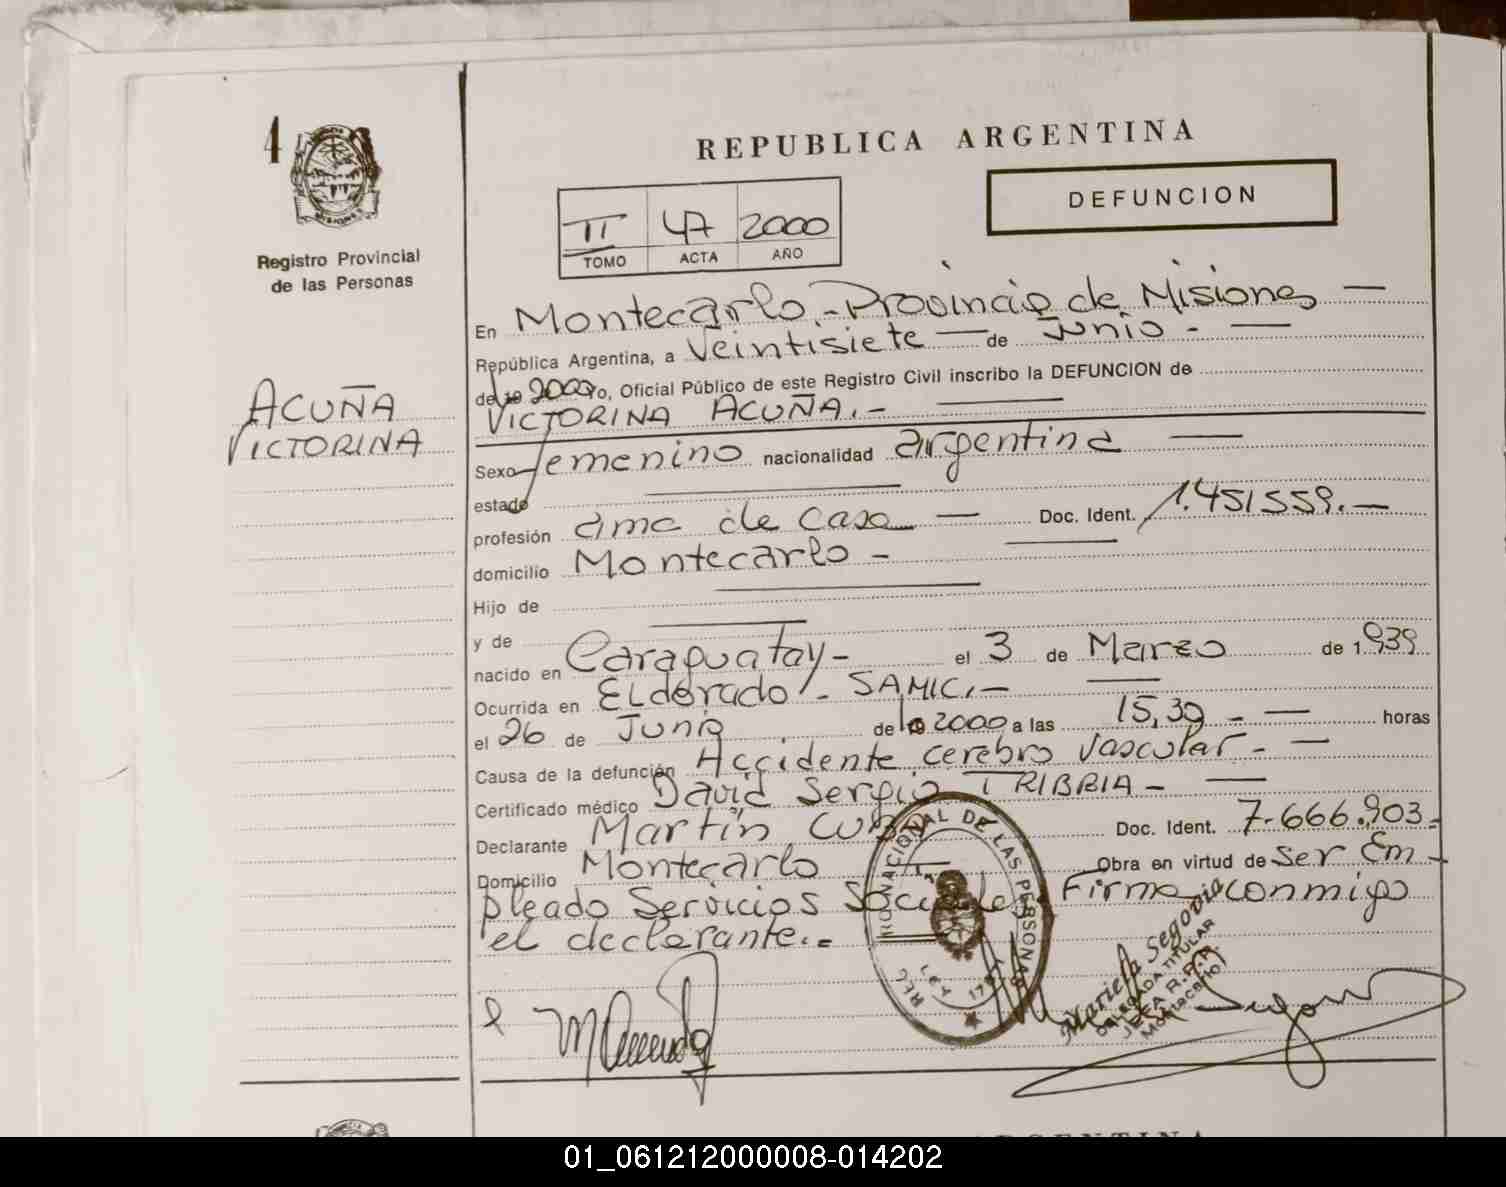 4
Registro Provincial
de las Personas
ACUÑA
VICTORINA
REPUBLICA ARGENTINA
DEFUNCION
II 47 2000
TOMO ACTA AÑO
En Montecarlo.- Provincia de Misiones —
República Argentina, a Veintisiete — de Junio - —
del 2000 yo, Oficial Público de este Registro Civil inscribo la DEFUNCION de
VICTORINA ACUÑA.- —
Sexo femenino nacionalidad argentina —
estado —
profesión ama de casa — Doc. Ident. 1.451559.-
domicilio Montecarlo - —
Hijo de —
y de —
nacido en Caraguatay - el 3 de Marzo de 1.939
Ocurrida en ELdorado - SAMIC.- —
el 26 de Junio del 2000 a las 15,30 - — horas
Causa de la defunción Accidente cerebro vascular - —
Certificado médico David Sergio TRIBRIA - —
Declarante Martín Doc. Ident. 7.666.903-
Domicilio Montecarlo Obra en virtud de ser Em-
pleado Servicios Sociales Firma conmigo
el declarante.=
NACIONAL DE LAS PERSONAS
LEY
REG
Mariela Segovia
DELEGADA TITULAR
Montecarlo
01_061212000008-014202